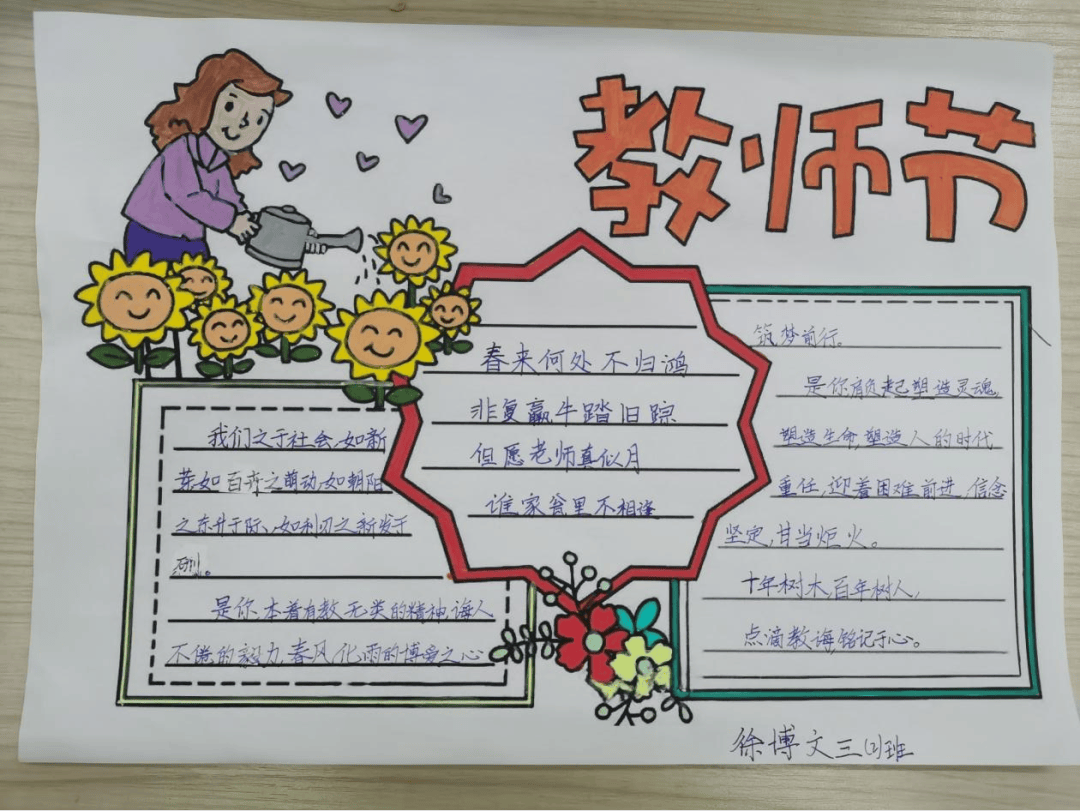 教师节
我们之于社会,如新
芽,如百卉之萌动,如朝阳
之东升于际,如利刃之新发于
硎。
是你,本着有教无类的精神,诲人
不倦的毅力,春风化雨的博爱之心
春来何处不归鸿
非复羸牛踏旧踪
但愿老师真似月
谁家瓮里不相逢
筑梦前行。
是你肩负起塑造灵魂,
塑造生命,塑造人的时代
重任,迎着困难前进,信念
坚定,甘当炬火。
十年树木,百年树人,
点滴教诲,铭记于心。
徐博文三(2)班